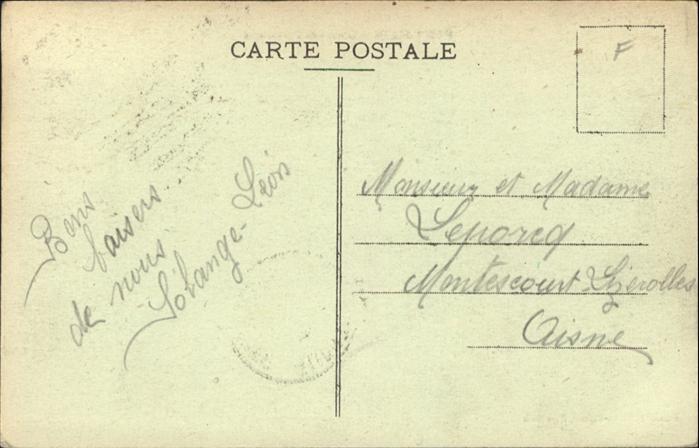 CARTE POSTALE
F
Bons
baisers
de nous
Solange - Léon
Monsieur et Madame
Leporcq
Montescourt-Lizerolles
Aisne